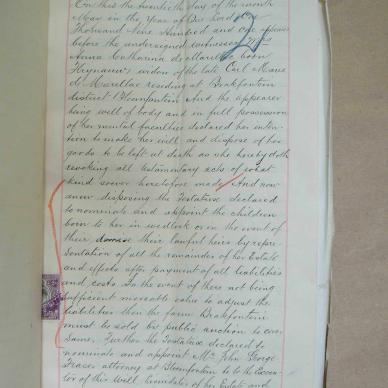 On this the twentieth day of the month
May in the Year of Our Lord One
Thousand Nine Hundred and One appeared
before the undersigned witnesses Mrs
Anna Catharina de Marillac born
Heymans widow of the late Carl Marie
de Marillac residing at Brakfontein
district Bloemfontein And the appearer
being well of body and in full possession
of her mental faculties declared her inten
tion to make her will and dispose of her
goods to be left at death as she hereby doth
revoking all testamentary acts of what
kind soever heretofore made And now
anew disposing the Testatrix declared
to nominate and appoint the children
born to her in wedlock or in the event of
their demise their lawful heirs by repre
sentation of all the remainder of her Estate
and effects after payment of all liabilities
and costs. In the event of there not being
sufficient moveable value to adjust the
liabilities then the farm Brakfontein
must be sold by public auction to cover
same. Further the Testatrix declared to
nominate and appoint Mr John George
Fraser attorney at Bloemfontein to be the Execu
tor of this Will, of her Estate and